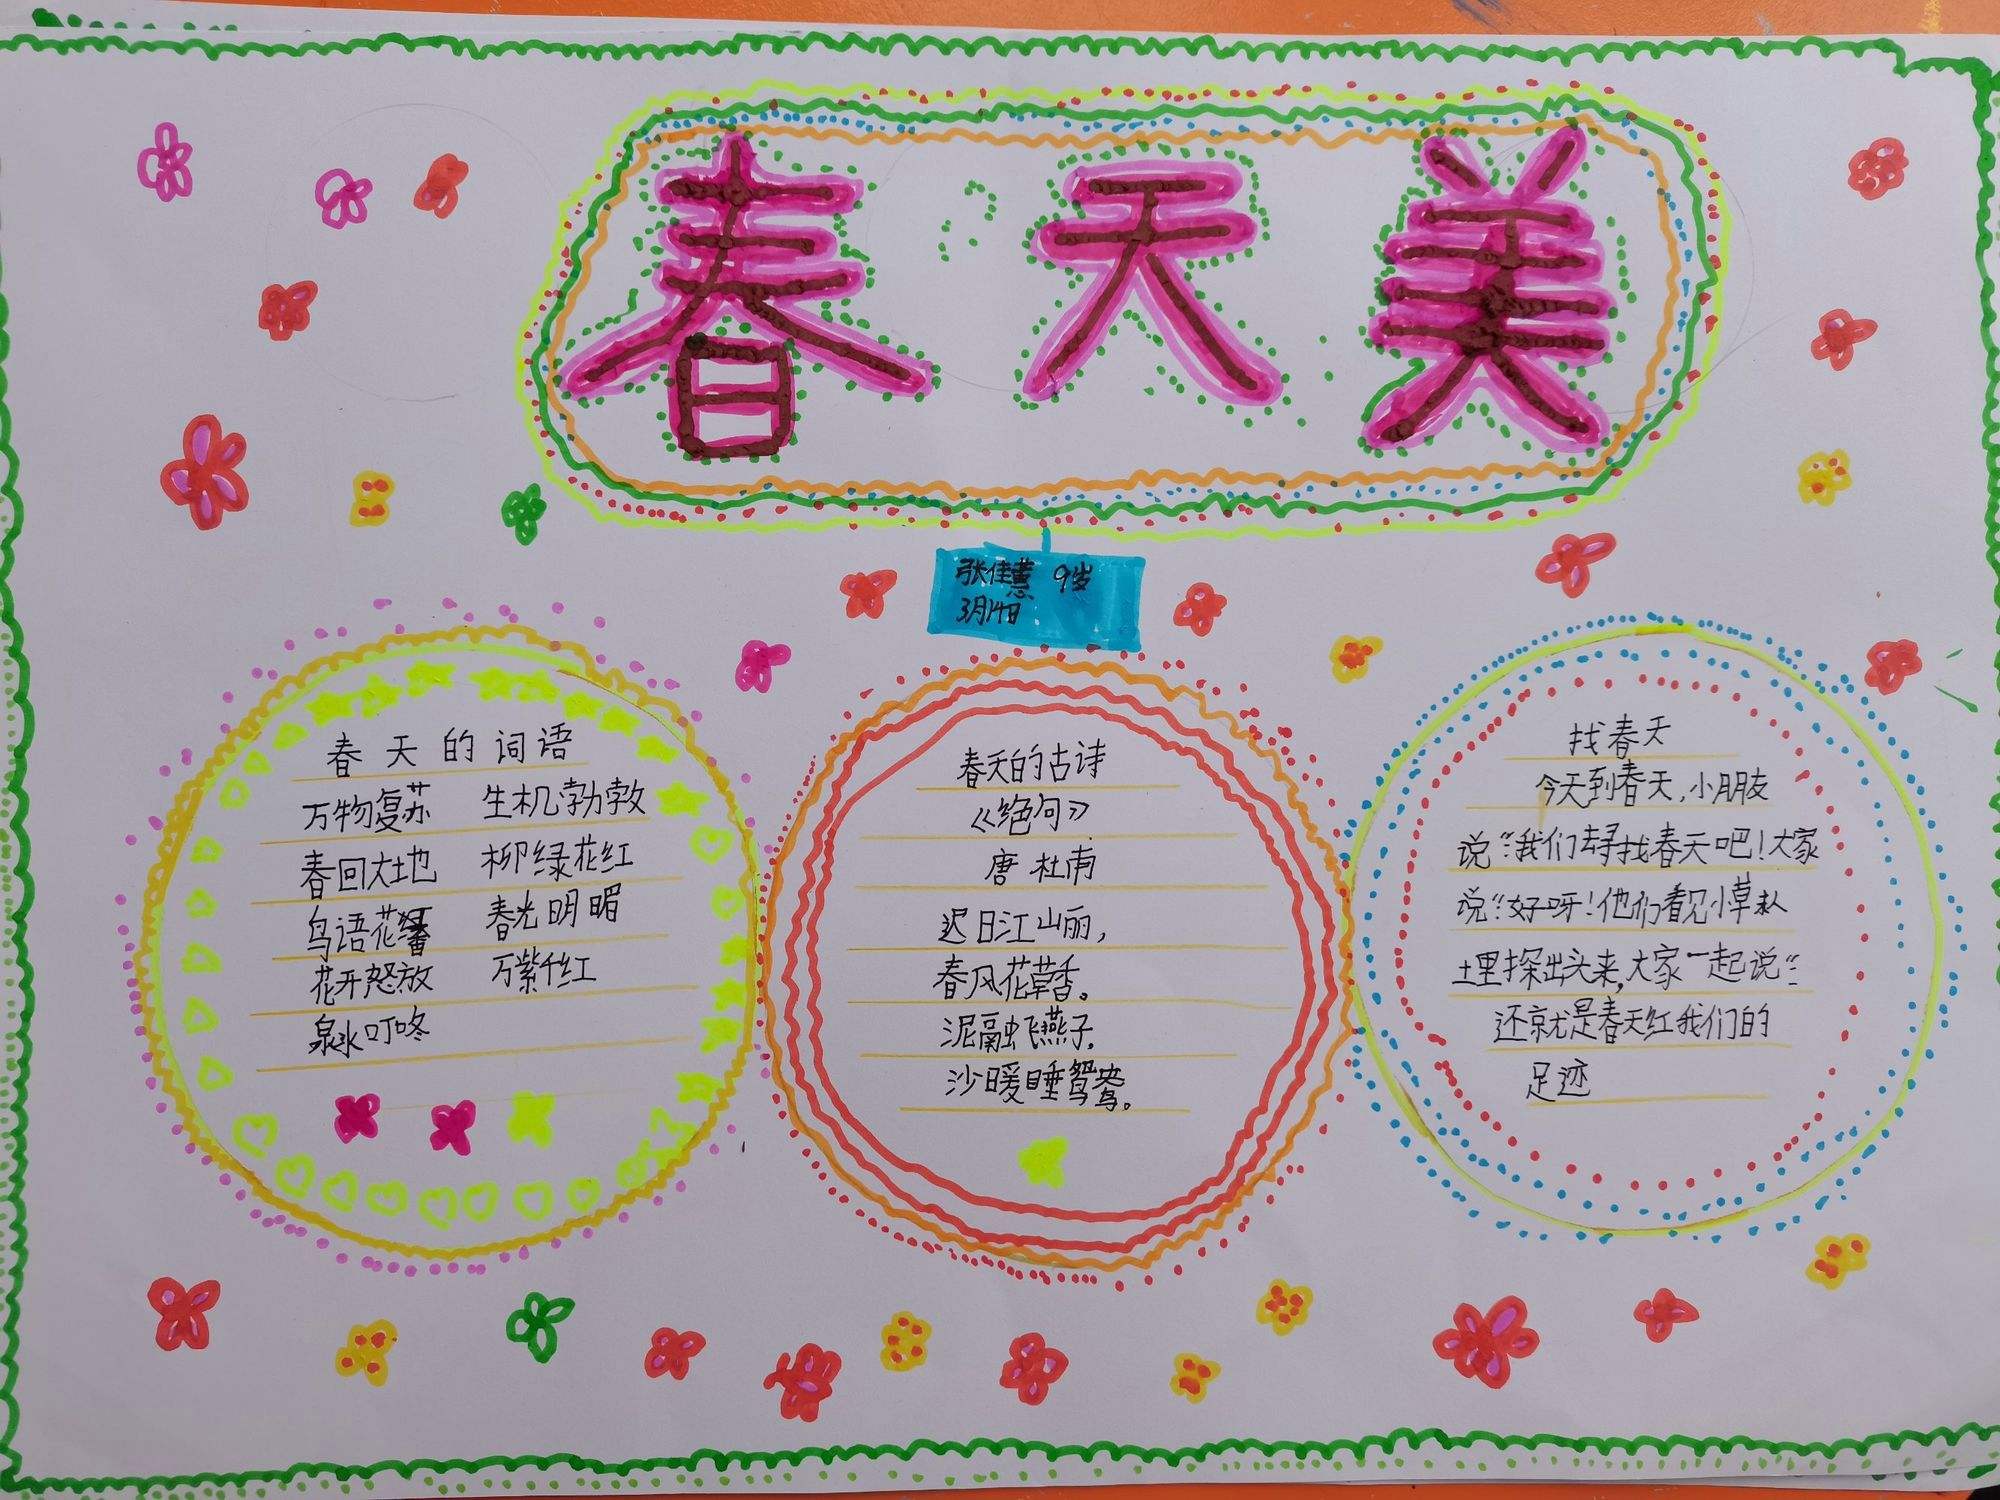 春天美
张佳慧 9岁
3月14日
春天的词语
万物复苏 生机勃勃
春回大地 柳绿花红
鸟语花香 春光明媚
花开怒放 万紫千红
泉水叮咚
春天的古诗
《绝句》
唐 杜甫
迟日江山丽，
春风花草香。
泥融飞燕子，
沙暖睡鸳鸯。
找春天
今天到春天，小朋友
说“我们去寻找春天吧！大家
说“好呀！他们看见小草从
土里探出头来，大家一起说“
还京尤是春天红我们的
足迹